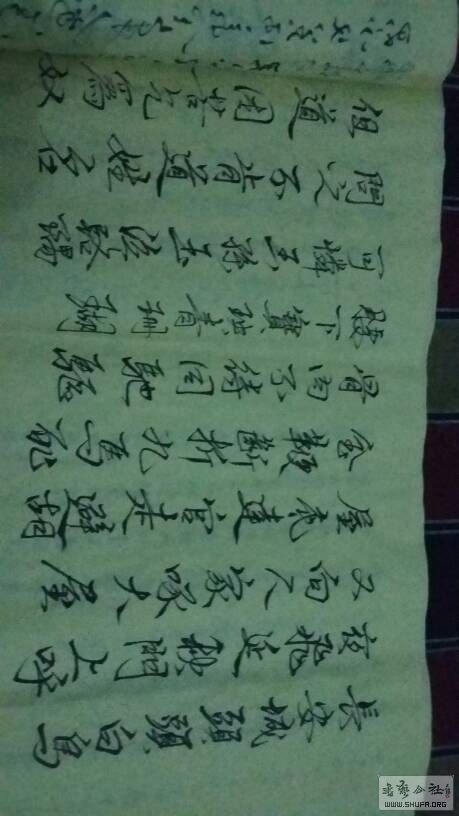 長安城頭頭白烏
夜飛延秋門上呼
又向人家啄大屋
屋底達官走避胡
金鞭斷折九馬死
骨肉不待同馳驅
腰下寶玦青珊瑚
可憐王孫泣路隅
問之不肯道姓名
但道困苦乞爲奴
書法公社
WWW.SHUFA.ORG